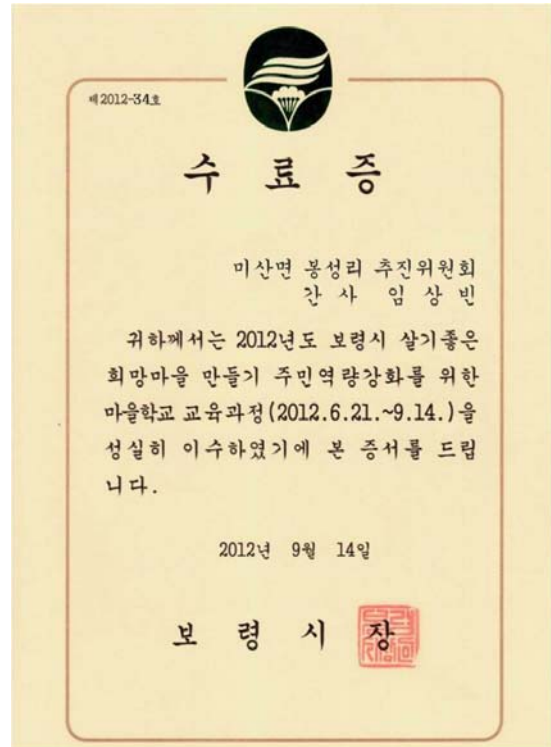 제2012-34호
수 료 증
미산면 봉성리 추진위원회
간 사 임 상 빈
귀하께서는 2012년도 보령시 살기좋은
희망마을 만들기 주민역량강화를 위한
마을학교 교육과정(2012.6.21.~9.14.)을
성실히 이수하였기에 본 증서를 드립
니다.
2012년 9월 14일
보 령 시 장